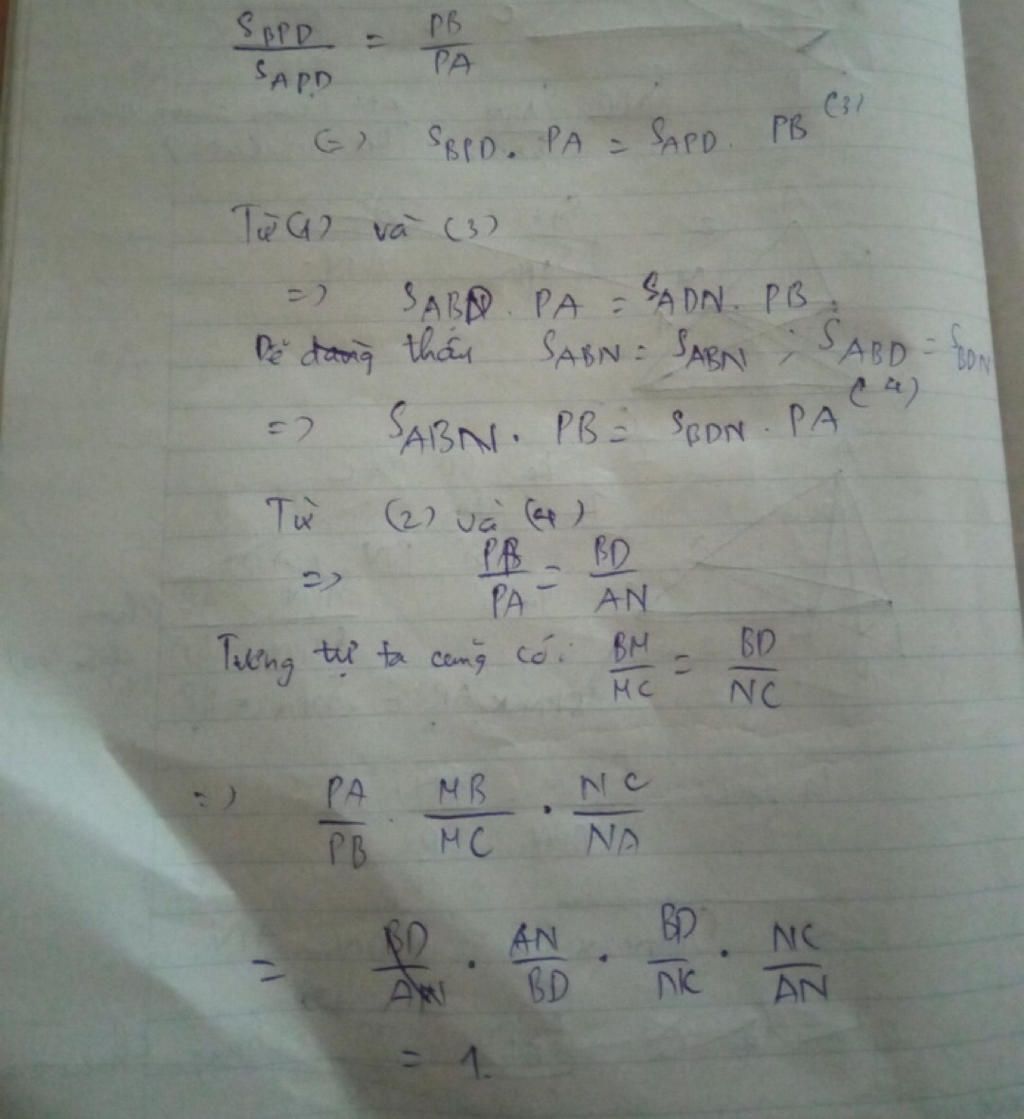 S_BPD / S_APD = PB / PA
(=) S_BPD . PA = S_APD . PB (3)
Từ (1) và (3)
=) S_ABD . PA = S_ADN . PB
Dễ dàng thấy S_ABN = S_ABN ; S_ABD = S_BDN
=) S_ABN . PB = S_BDN . PA (4)
Từ (2) và (4)
=> PB / PA = BD / AN
Tương tự ta cũng có: BM / MC = BD / NC
=) PA / PB . MB / MC . NC / NA
= AN / BD . BD / NC . NC / AN
= 1.